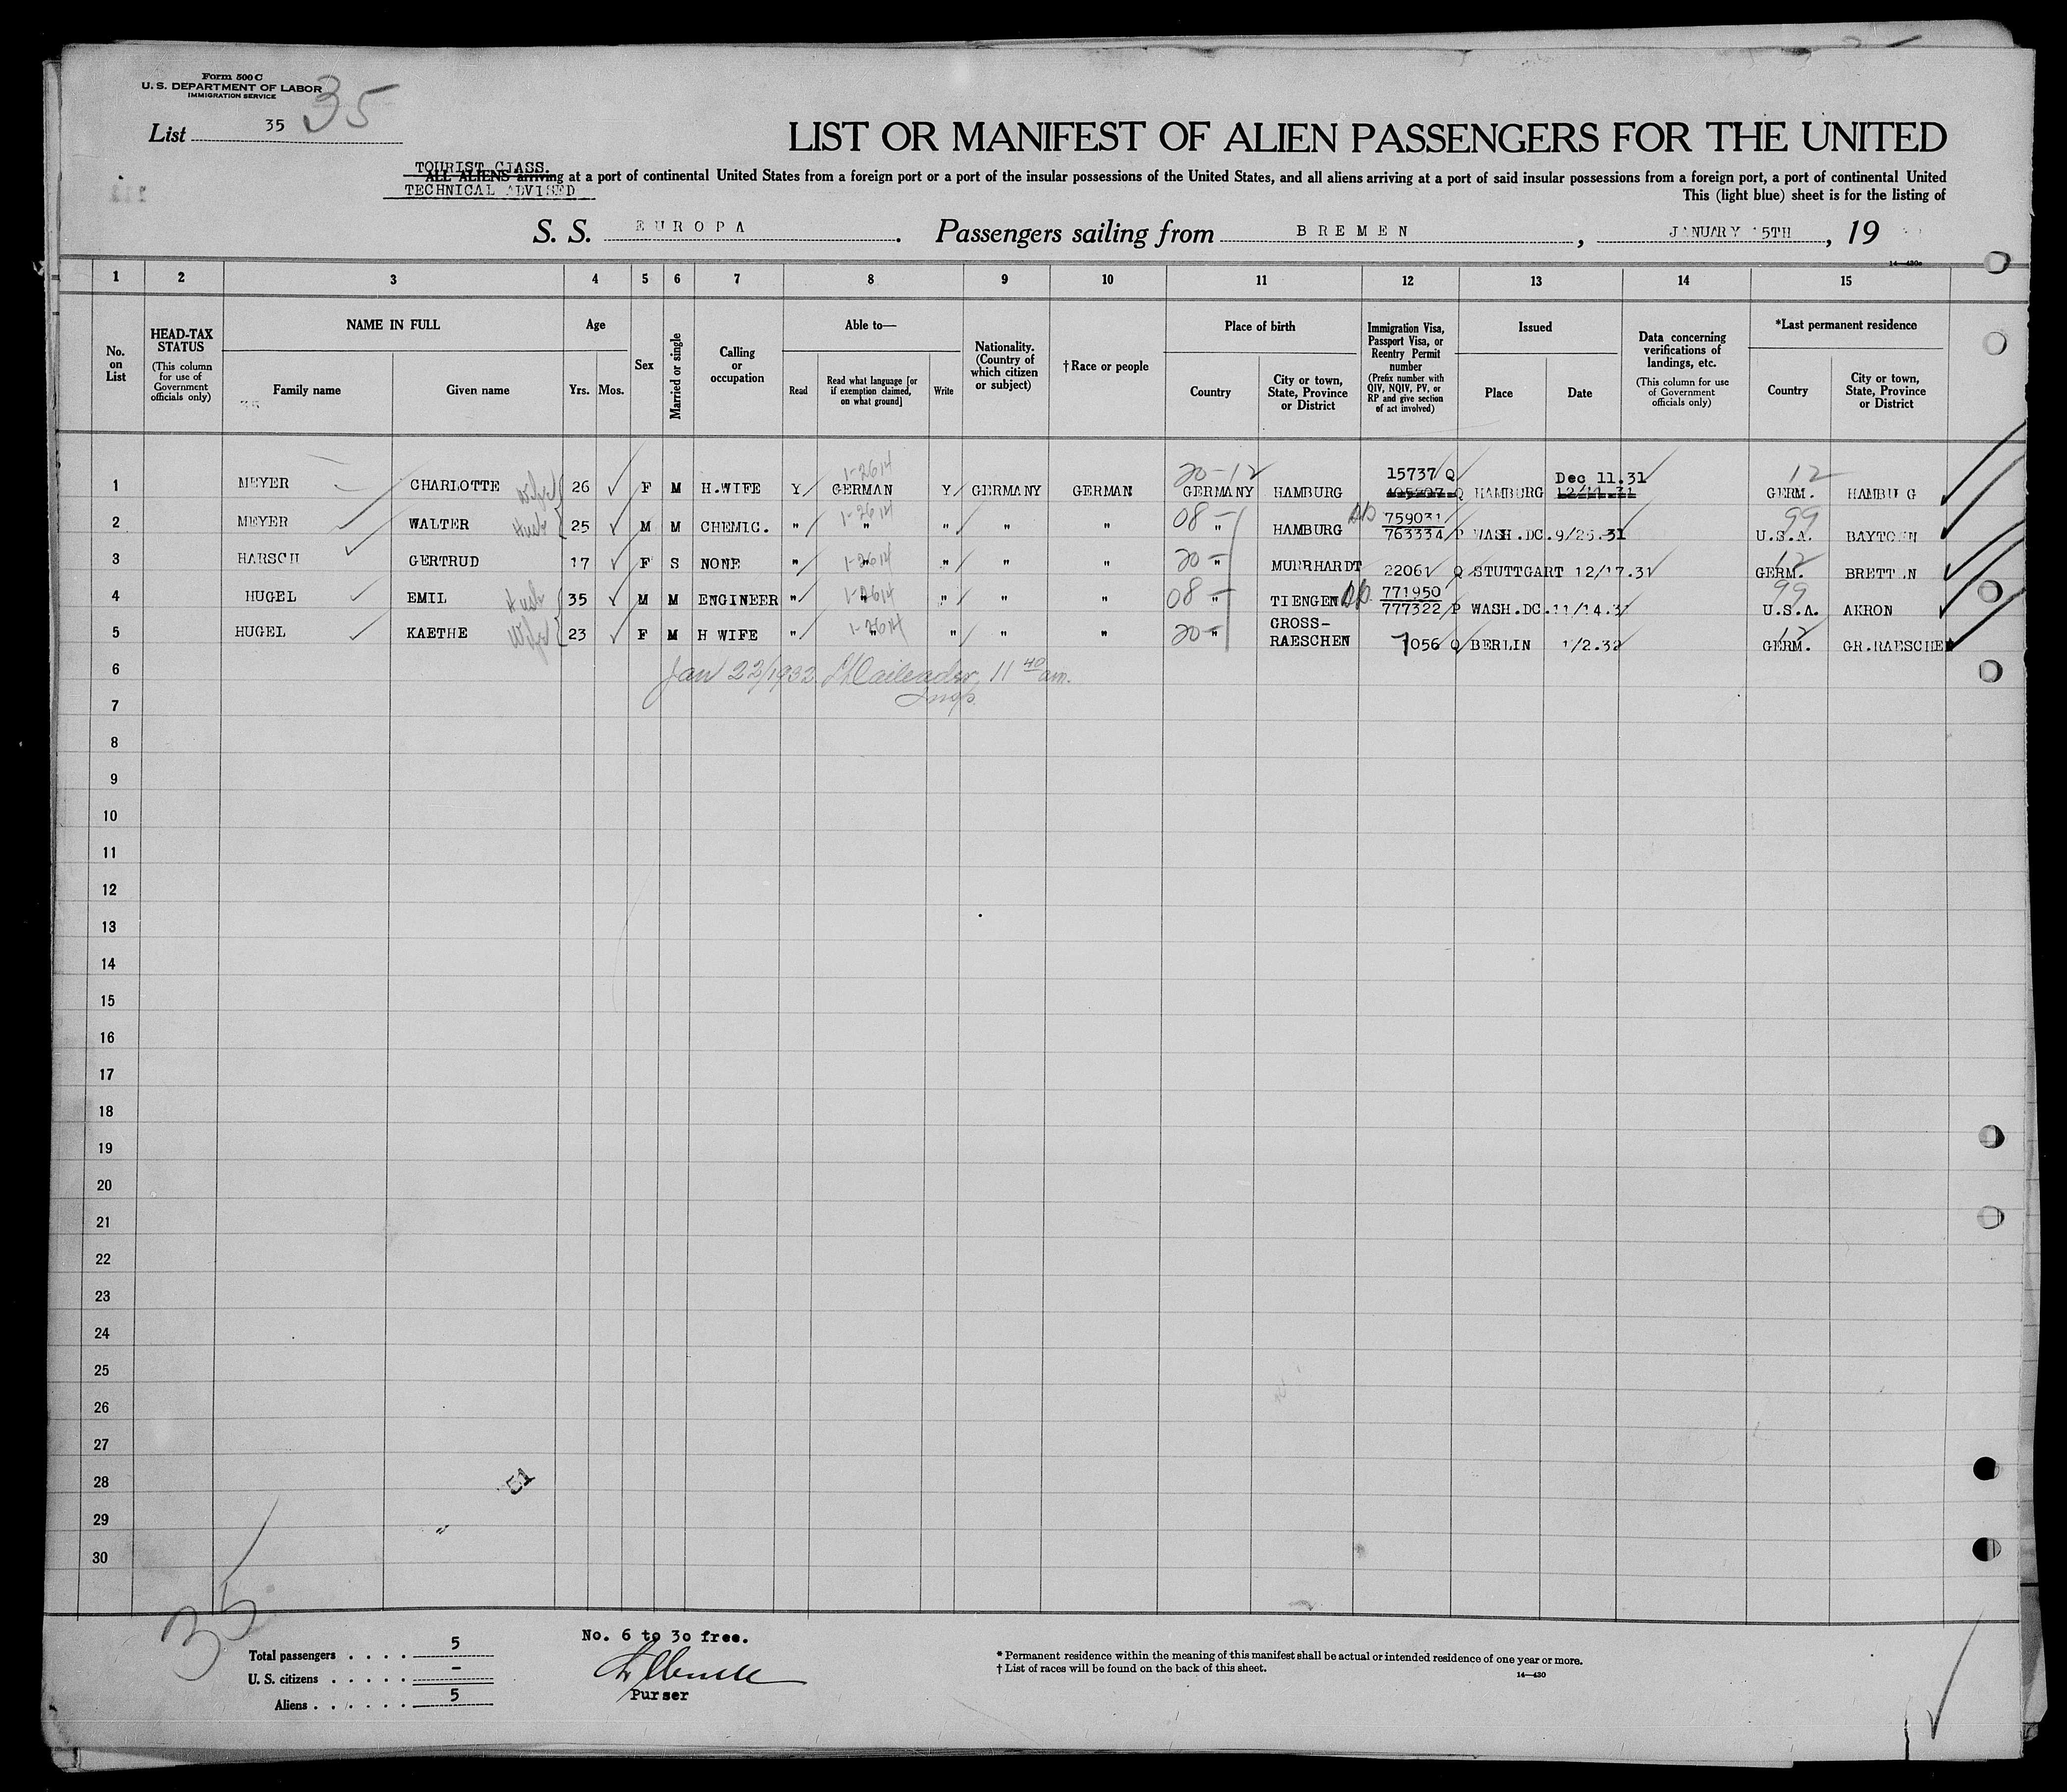 Form 500 C
U. S. DEPARTMENT OF LABOR
IMMIGRATION SERVICE
35
List 35
LIST OR MANIFEST OF ALIEN PASSENGERS FOR THE UNITED
TOURIST CLASS.
ALL ALIENS arriving at a port of continental United States from a foreign port or a port of the insular possessions of the United States, and all aliens arriving at a port of said insular possessions from a foreign port, a port of continental United
TECHNICAL ADVISED
This (light blue) sheet is for the listing of
S. S. EUROPA. Passengers sailing from BREMEN, JANUARY 15TH, 19
14—430a
1 2 3 4 5 6 7 8 9 10 11 12 13 14 15
No. on List
HEAD-TAX STATUS
(This column for use of Government officials only)
NAME IN FULL
Family name
Given name
Age
Yrs. Mos.
Sex
Married or single
Calling or occupation
Able to—
Read
Read what language [or if exemption claimed, on what ground]
Write
Nationality. (Country of which citizen or subject)
† Race or people
Place of birth
Country
City or town, State, Province or District
Immigration Visa, Passport Visa, or Reentry Permit number
(Prefix number with QIV, NQIV, PV, or RP and give section of act involved)
Issued
Place
Date
Data concerning verifications of landings, etc.
(This column for use of Government officials only)
*Last permanent residence
Country
City or town, State, Province or District
1-2614 20-12 15737 Q Dec 11.31 12
1 MEYER CHARLOTTE Wife 26 F M H.WIFE Y GERMAN Y GERMANY GERMAN GERMANY HAMBURG Q HAMBURG 12/11.31 GERM. HAMBU G
1-2614 08- 759031 99
2 MEYER WALTER Husb 25 M M CHEMIC. " " " " " " HAMBURG 763334 P WASH.DC. 9/25.31 U.S.A. BAYTOWN
3 HARSCH GERTRUD 17 F S NONE " 1-2614 " " " " 20- " MURRHARDT 22061 Q STUTTGART 12/17.31 12 GERM. BRETTEN
771950 99
4 HUGEL EMIL Husb 35 M M ENGINEER " 1-2614 " " " " 08- " TIENGEN 777322 P WASH.DC. 11/14.31 U.S.A. AKRON
GROSS-
5 HUGEL KAETHE Wife 23 F M H WIFE " 1-2614 " " " " 20- " RAESCHEN 7056 Q BERLIN 1/2.32 12 GERM. GR.RAESCHE
6 Jan 22/1932. 11 40 am.
Insp.
7
8
9
10
11
12
13
14
15
16
17
18
19
20
21
22
23
24
25
26
27
28
29
30
35
No. 6 to 30 free.
Total passengers . . . . 5
U. S. citizens . . . . . –
Aliens . . . . . . 5
Purser
* Permanent residence within the meaning of this manifest shall be actual or intended residence of one year or more.
† List of races will be found on the back of this sheet.
14—430